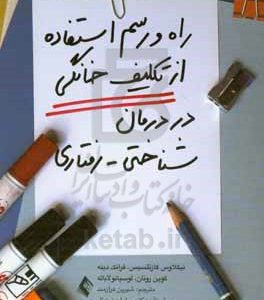 راه و رسم استفاده
از تکلیف خانگی
در درمان
شناختی - رفتاری
خانه کتاب و ادبیات ایران
ketab.ir
نیکلاوس کازنتکسیس، فرانک دینه
کوین رونان، لوسیانو لاباته